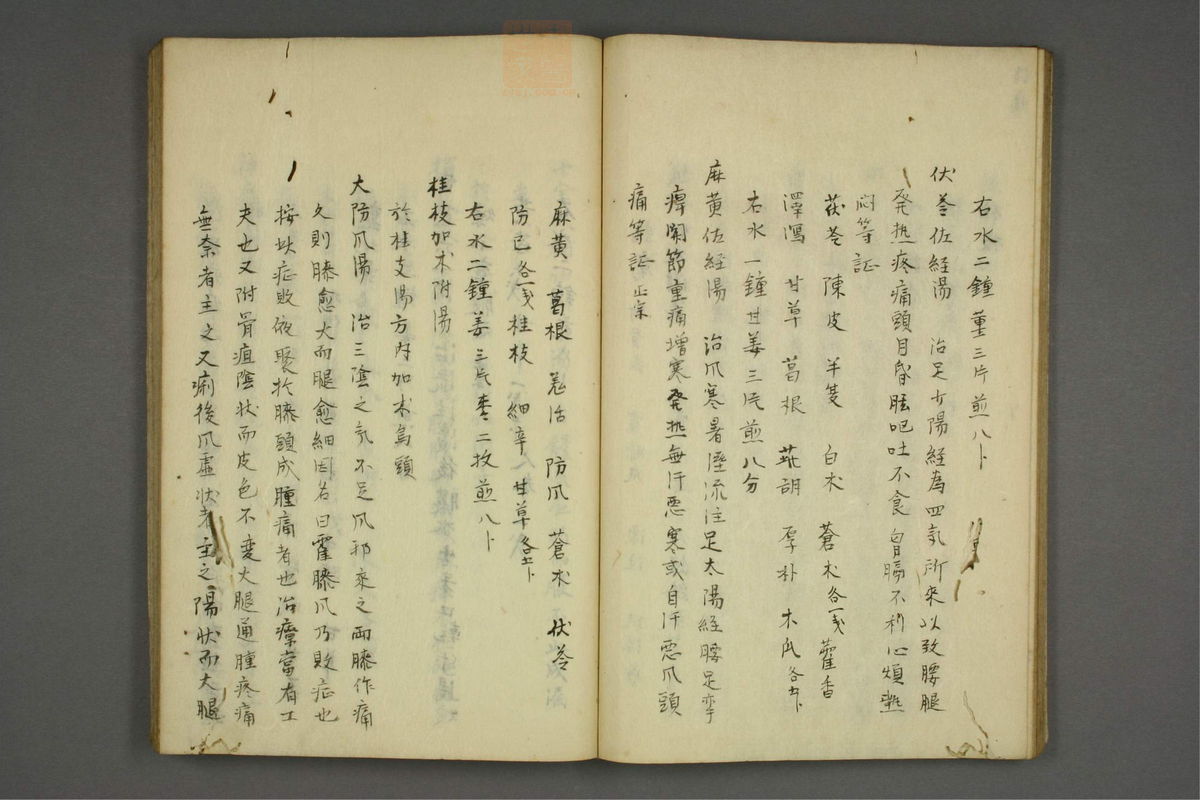 右水二鍾薑三片煎八卜
伏苓佐経湯 治足少陽経為四気所来以致腰腿
発热疼痛頭目昏眩呕吐不食胃膈不利心煩热
闷等証
茯苓 陳皮 半隻 白朮 蒼朮各一戔 藿香
澤瀉 甘草 葛根 茈胡 厚朴 木瓜各五卜
右水一鍾廿姜三片煎八分
麻黄佐経湯 治爪寒暑溼流注足太陽経腰足挛
痺関節重痛増寒発热無汗悪寒或自汗悪爪頭
痛等証 正宗
麻黄 葛根 羌活 防爪 蒼朮 伏苓
防已各一戔 桂枝 細辛 甘草各五卜
右水二鍾姜三片枣二枚煎八卜
桂枝加朮附湯
於桂支湯方内加朮烏頭
大防爪湯 治三陰之気不足爪邪乘之両膝作痛
久則膝愈大而腿愈細因名曰霍膝爪乃敗症也
按此症敗液聚於膝頭成腫痛者也治療當有工
夫也又附骨疽陰状而皮色不変大腿通腫疼痛
無奈者主之又痢後爪虚状者主之陽状而大腿